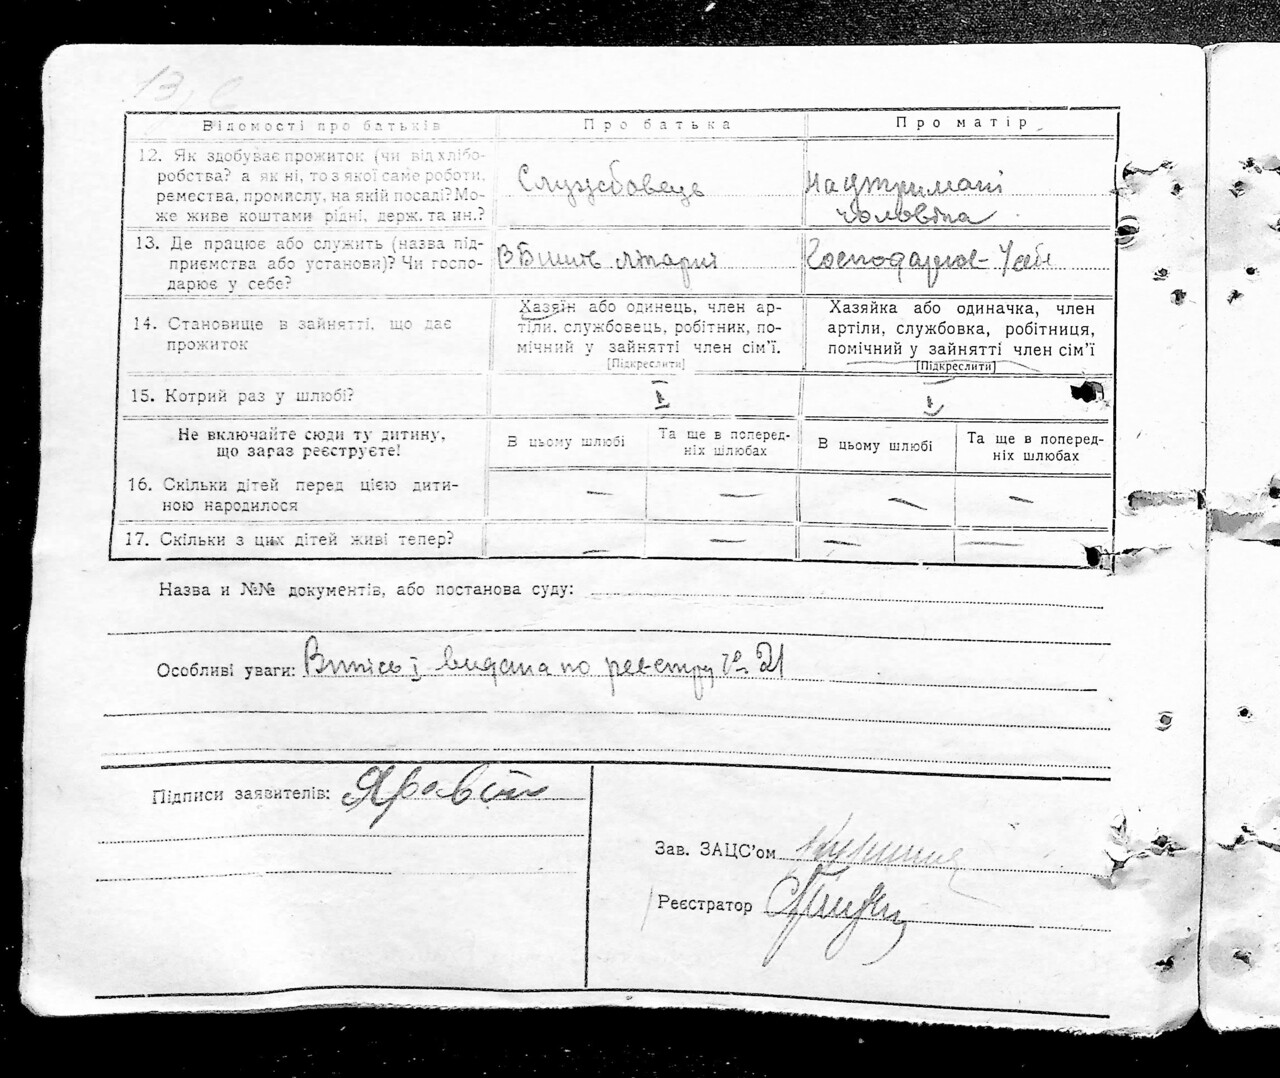 13
Відомості про батьків Про батька Про матір
12. Як здобуває прожиток (чи від хлібо-
робства? а як ні, то з якої саме роботи,
ремества, промислу, на якій посаді? Мо-
же живе коштами рідні, держ. та ин.?
Службовець
На утриманні
чоловіка
13. Де працює або служить (назва під-
приємства або установи)? Чи госпо-
дарює у себе?
14. Становище в зайнятті, що дає
прожиток
Хазяїн або одинець, член ар-
тіли, службовець, робітник, по-
мічний у зайнятті член сім'ї.
[Підкреслити]
Хазяйка або одиначка, член
артіли, службовка, робітниця,
помічний у зайнятті член сім'ї
[Підкреслити]
15. Котрий раз у шлюбі? I I
Не включайте сюди ту дитину,
що зараз реєструєте!
В цьому шлюбі
Та ще в поперед-
ніх шлюбах
В цьому шлюбі
Та ще в поперед-
ніх шлюбах
16. Скільки дітей перед цією дити-
ною народилося — — — —
17. Скільки з цих дітей живі тепер? — — — —
Назва и №№ документів, або постанова суду:
Особливі уваги: Випись I видана по реєстру № 21
Підписи заявителів:
Зав. ЗАЦС'ом
Реєстратор